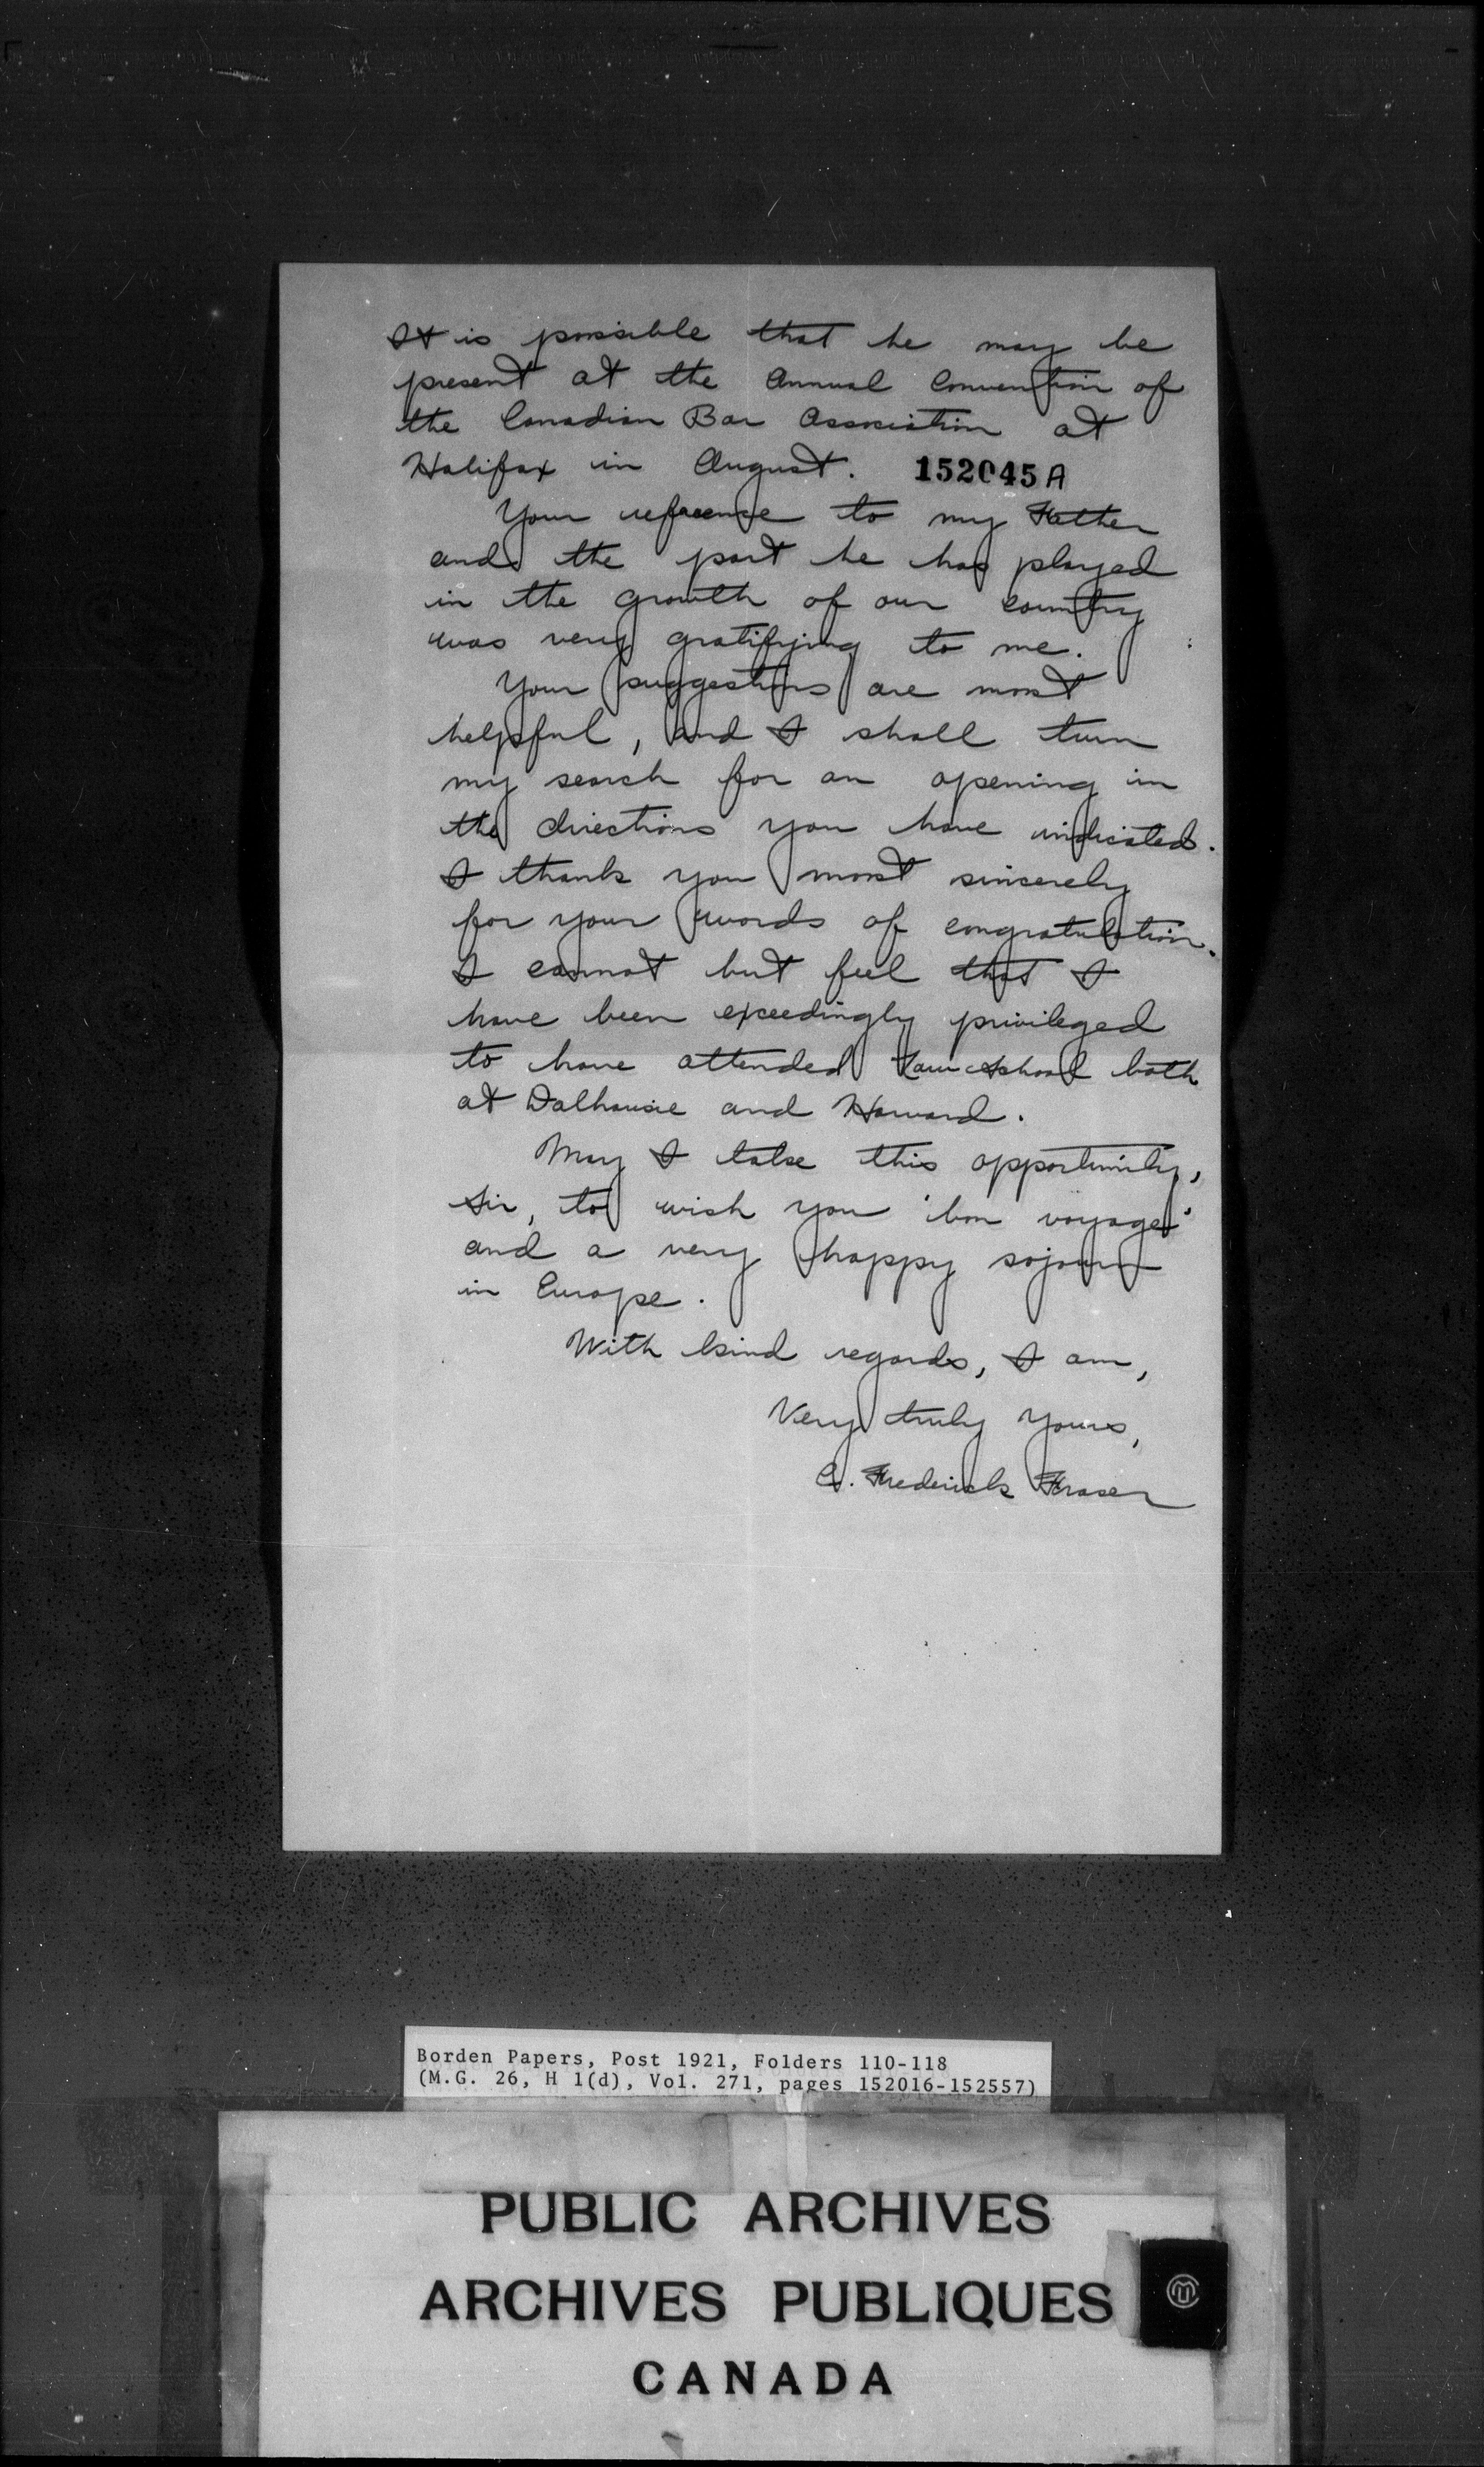 It is possible that he may be
present at the Annual Convention of
the Canadian Bar Association at
Halifax in August. 152045 A
Your reference to my Father
and the part he has played
in the growth of our country
was very gratifying to me.
Your suggestions are most
helpful, and I shall turn
my search for an opening in
the directions you have indicated.
I thank you most sincerely
for your words of congratulation.
I cannot but feel that I
have been exceedingly privileged
to have attended Law School both
at Dalhousie and Harvard.
May I take this opportunity,
Sir, to wish you 'bon voyage'
and a very happy sojourn
in Europe.
With kind regards, I am,
Very truly yours,
C. Frederick Fraser
Borden Papers, Post 1921, Folders 110-118
(M.G. 26, H 1(d), Vol. 271, pages 152016-152557)
PUBLIC ARCHIVES
ARCHIVES PUBLIQUES
CANADA